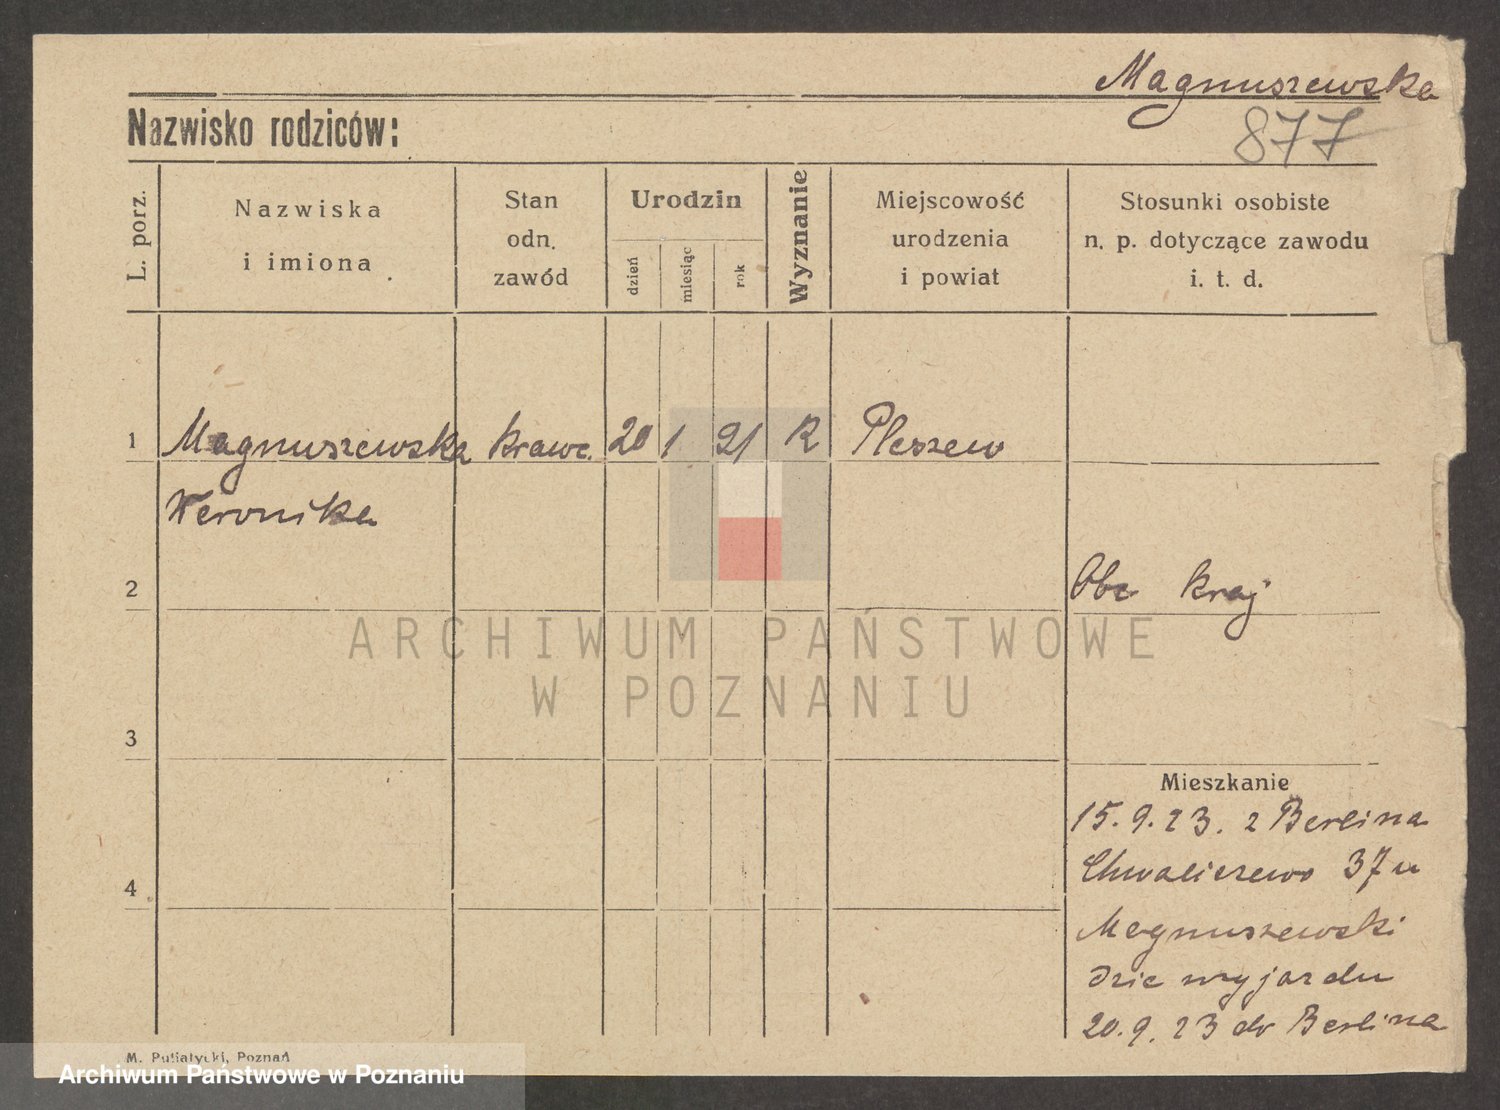 Magnuszewska
877
Nazwisko rodziców:
L. porz.
Nazwiska
i imiona
Stan
odn.
zawód
Urodzin
dzień
miesiąc
rok
Wyznanie
Miejscowość
urodzenia
i powiat
Stosunki osobiste
n. p. dotyczące zawodu
i. t. d.
1 Magnuszewska krawc. 20 1 21 R Pleszew
Weronika
2
Obc kraj
ARCHIWUM PAŃSTWOWE
W POZNANIU
3
Mieszkanie
15.9.23. z Berlina
Chwaliszewo 37 u
4
Magnuszewski
dzie wyjazdu
20.9.23 do Berlina
M. Putiatycki, Poznań
Archiwum Państwowe w Poznaniu